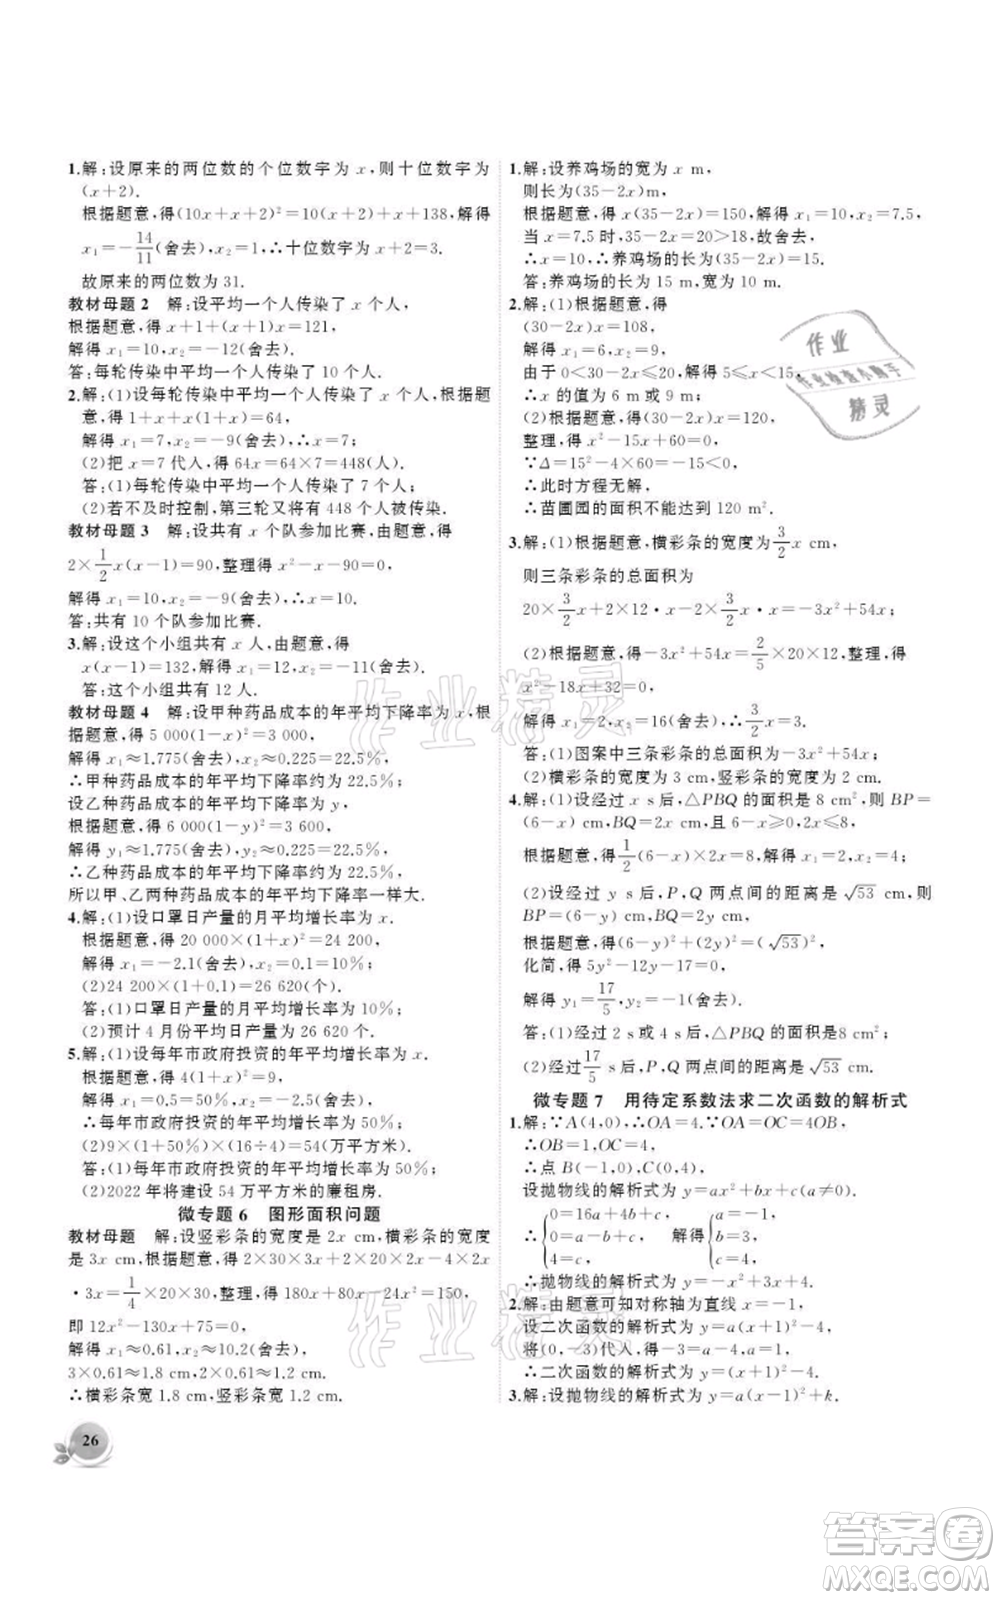 1.解:设原来的两位数的个位数字为 x,则十位数字为
(x+2).
根据题意,得(10x+x+2)²=10(x+2)+x+138,解得
x₁=-14/11(舍去),x₂=1,∴十位数字为 x+2=3.
故原来的两位数为 31.
教材母题 2 解:设平均一个人传染了 x 个人,
根据题意,得 x+1+(x+1)x=121,
解得 x₁=10,x₂=-12(舍去).
答:每轮传染中平均一个人传染了 10 个人.
2.解:(1)设每轮传染中平均一个人传染了 x 个人,根据
题意,得 1+x+x(1+x)=64,
解得 x₁=7,x₂=-9(舍去),∴x=7;
(2)把 x=7 代入,得 64x=64×7=448(人).
答:(1)每轮传染中平均一个人传染了 7 个人;
(2)若不及时控制,第三轮又将有 448 人被传染.
教材母题 3 解:设共有 x 个队参加比赛,由题意,得
2×1/2x(x-1)=90,整理得 x²-x-90=0,
解得 x₁=10,x₂=-9(舍去),∴x=10.
答:共有 10 个队参加比赛.
3.解:设这个小组共有 x 人,由题意,得
x(x-1)=132,解得 x₁=12,x₂=-11(舍去).
答:这个小组共有 12 人.
教材母题 4 解:设甲种药品成本的年平均下降率为 x,根
据题意,得 5 000(1-x)²=3 000,
解得 x₁≈1.775(舍去),x₂≈0.225=22.5%;
∴甲种药品成本的年平均下降率约为 22.5%;
设乙种药品成本的年平均下降率为 y,
根据题意,得 6 000(1-y)²=3 600,
解得 y₁≈1.775(舍去),y₂≈0.225=22.5%;
∴乙种药品成本的年平均下降率约为 22.5%,
所以甲、乙两种药品成本的年平均下降率一样大.
4.解:(1)设口罩日产量的月平均增长率为 x.
根据题意,得 20 000×(1+x)²=24 200,
解得 x₁=-2.1(舍去),x₂=0.1=10%;
(2)24 200×(1+0.1)=26 620(个).
答:(1)口罩日产量的月平均增长率为 10%;
(2)预计 4 月份平均日产量为 26 620 个.
5.解:(1)设每年市政府投资的年平均增长率为 x.
根据题意,得 4(1+x)²=9,
解得 x₁=0.5=50%,x₂=-2.5(舍去),
∴每年市政府投资的年平均增长率为 50%;
(2)9×(1+50%)×(16÷4)=54(万平方米).
答:(1)每年市政府投资的年平均增长率为 50%;
(2)2022 年将建设 54 万平方米的廉租房.
微专题 6 图形面积问题
教材母题 解:设竖彩条的宽度是 2x cm,横彩条的宽度
是 3x cm,根据题意,得 2×30×3x+2×20×2x-4×2x
·3x=1/4×20×30,整理,得 180x+80x-24x²=150,
即 12x²-130x+75=0,
解得 x₁≈0.61,x₂≈10.2(舍去).
3×0.61≈1.8 cm,2×0.61≈1.2 cm.
∴横彩条宽 1.8 cm,竖彩条宽 1.2 cm.
26
1.解:设养鸡场的宽为 x m,
则长为(35-2x)m,
根据题意,得 x(35-2x)=150,解得 x₁=10,x₂=7.5,
当 x=7.5 时,35-2x=20>18,故舍去,
∴x=10,∴养鸡场的长为 35-2x=15.
答:养鸡场的长为 15 m,宽为 10 m.
2.解:(1)根据题意,得
(30-2x)x=108,
解得 x₁=6,x₂=9,
由于 0<30-2x≤20,解得 5≤x<15,
∴x 的值为 6 m或 9 m;
(2)根据题意,得(30-2x)x=120,
整理,得 x²-15x+60=0,
∵Δ=15²-4×60=-15<0,
∴此时方程无解,
∴苗圃园的面积不能达到 120 m².
3.解:(1)根据题意,横彩条的宽度为3/2x cm,
则三条彩条的总面积为
20×3/2x+2×12·x-2×3/2x·x=-3x²+54x;
(2)根据题意,得-3x²+54x=2/5×20×12,
x²-18x+32=0,
解得 x₁=2,x₂=16(舍去),∴3/2x=3.
答:(1)图案中三条彩条的总面积为-3x²+54x;
(2)横彩条的宽度为 3 cm,竖彩条的宽度为 2 cm.
4.解:(1)设经过 x s后,△PBQ 的面积是 8 cm²,则 BP=
(6-x) cm,BQ=2x cm,且 0≤x≤6,
根据题意,得1/2(6-x)×2x=8,解得 x₁=2,x₂=4;
(2)设经过 y s后,P,Q 两点间的距离是 √53 cm,则
BP=(6-y) cm,BQ=2y cm,
根据题意,得(6-y)²+(2y)²=(√53)²,
化简,得 5y²-12y-17=0,
解得 y₁=17/5,y₂=-1(舍去).
答:(1)经过 2 s或 4 s后,△PBQ 的面积是8 cm²;
(2)经过17/5 s后,P,Q 两点间的距离为 √53 cm.
微专题 7 用待定系数法求二次函数的解析式
1.解:∵A(4,0),∴OA=4.∵OA=OC=4OB,
∴OB=1,OC=4,
∴点 B(-1,0),C(0,4).
设抛物线的解析式为 y=ax²+bx+c(a≠0).
∴{0=16a+4b+c, 0=a-b+c, 4=c, 解得{a=-1, b=3, c=4,
∴抛物线的解析式为 y=-x²+3x+4.
2.解:由题意可知对称轴为直线 x=-1,
设二次函数的解析式为 y=a(x+1)²-4,
将(0,-3)代入,得 a=1,
∴二次函数的解析式为 y=(x+1)²-4.
3.解:设抛物线的解析式为 y=a(x-1)²+k.
作业
作业检查小助手
精灵
作业精灵
作业精灵
答案圈
MXQE.COM